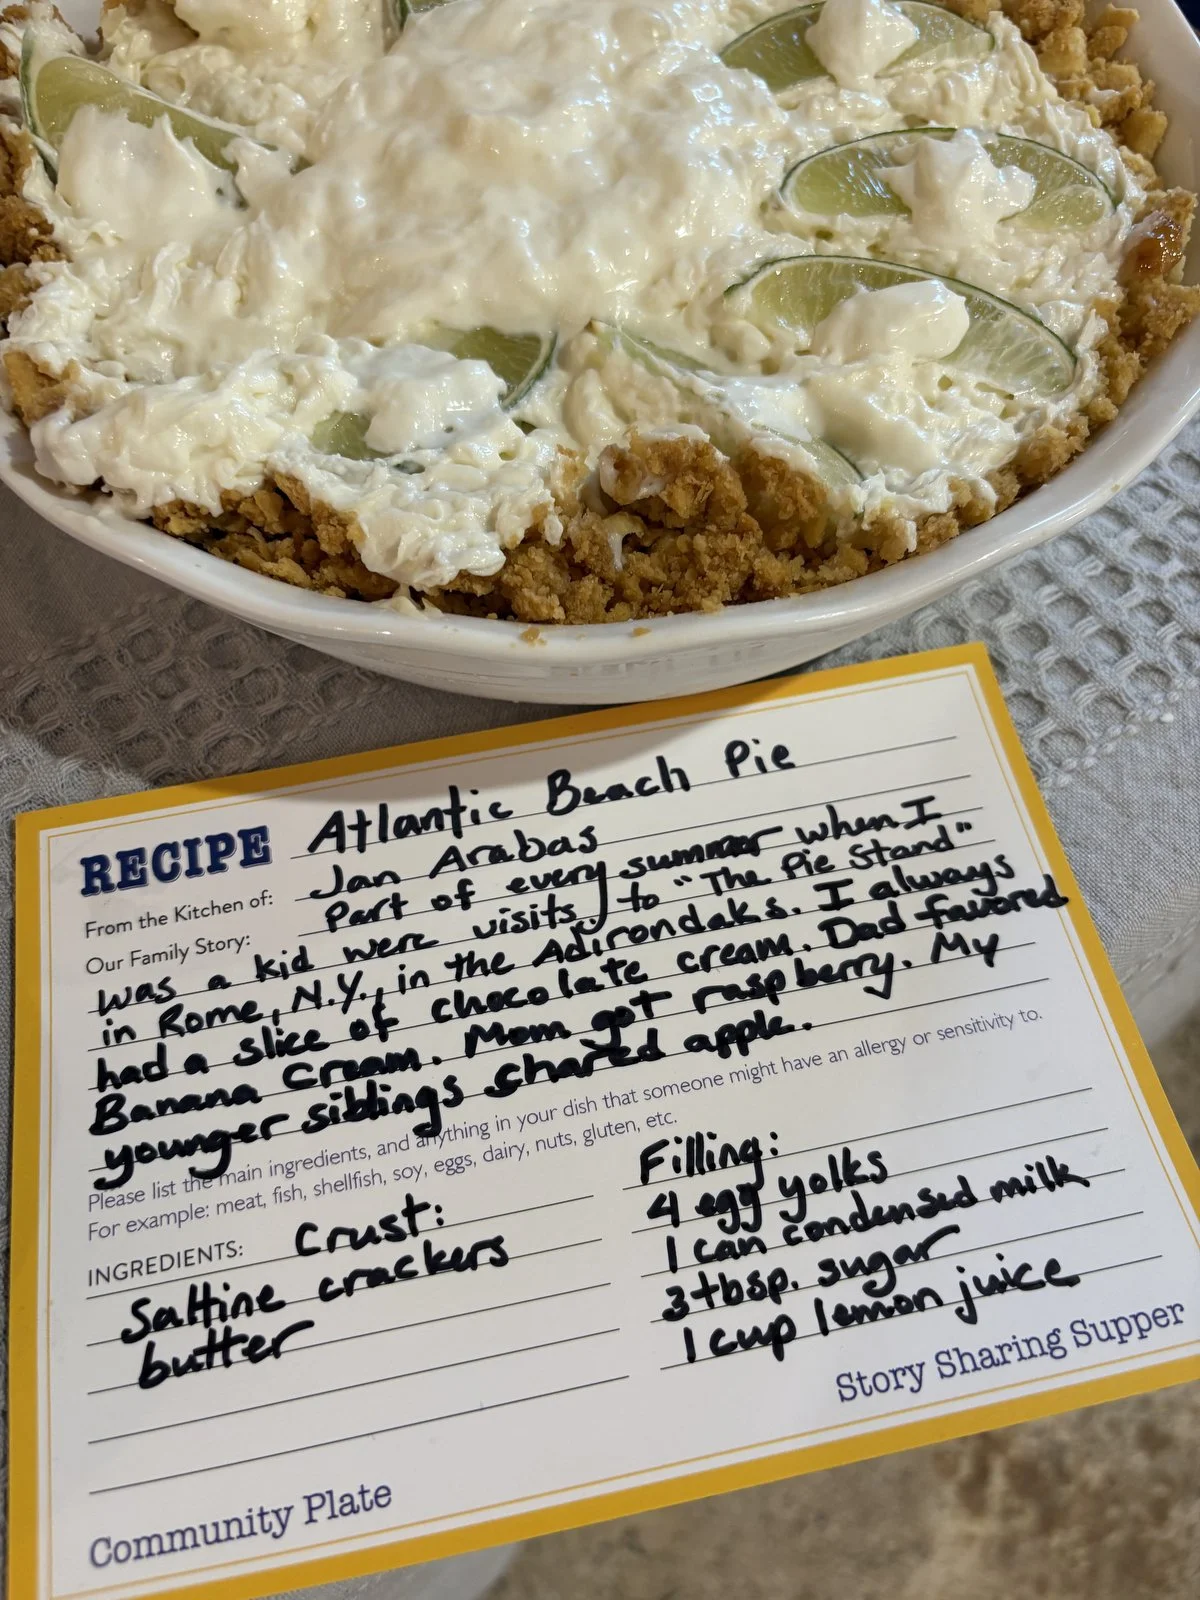 RECIPE Atlantic Beach Pie
From the Kitchen of: Jan Arabas
Our Family Story: Part of every summer when I
was a kid were visits to "The Pie Stand"
in Rome, N.Y., in the Adirondaks. I always
had a slice of chocolate cream. Dad favored
Banana Cream. Mom got raspberry. My
younger siblings shared apple.
Please list the main ingredients, and anything in your dish that someone might have an allergy or sensitivity to.
For example: meat, fish, shellfish, soy, eggs, dairy, nuts, gluten, etc.
INGREDIENTS: Crust:
Saltine crackers
butter
Filling:
4 egg yolks
1 can condensed milk
3 tbsp. sugar
1 cup lemon juice
Community Plate
Story Sharing Supper